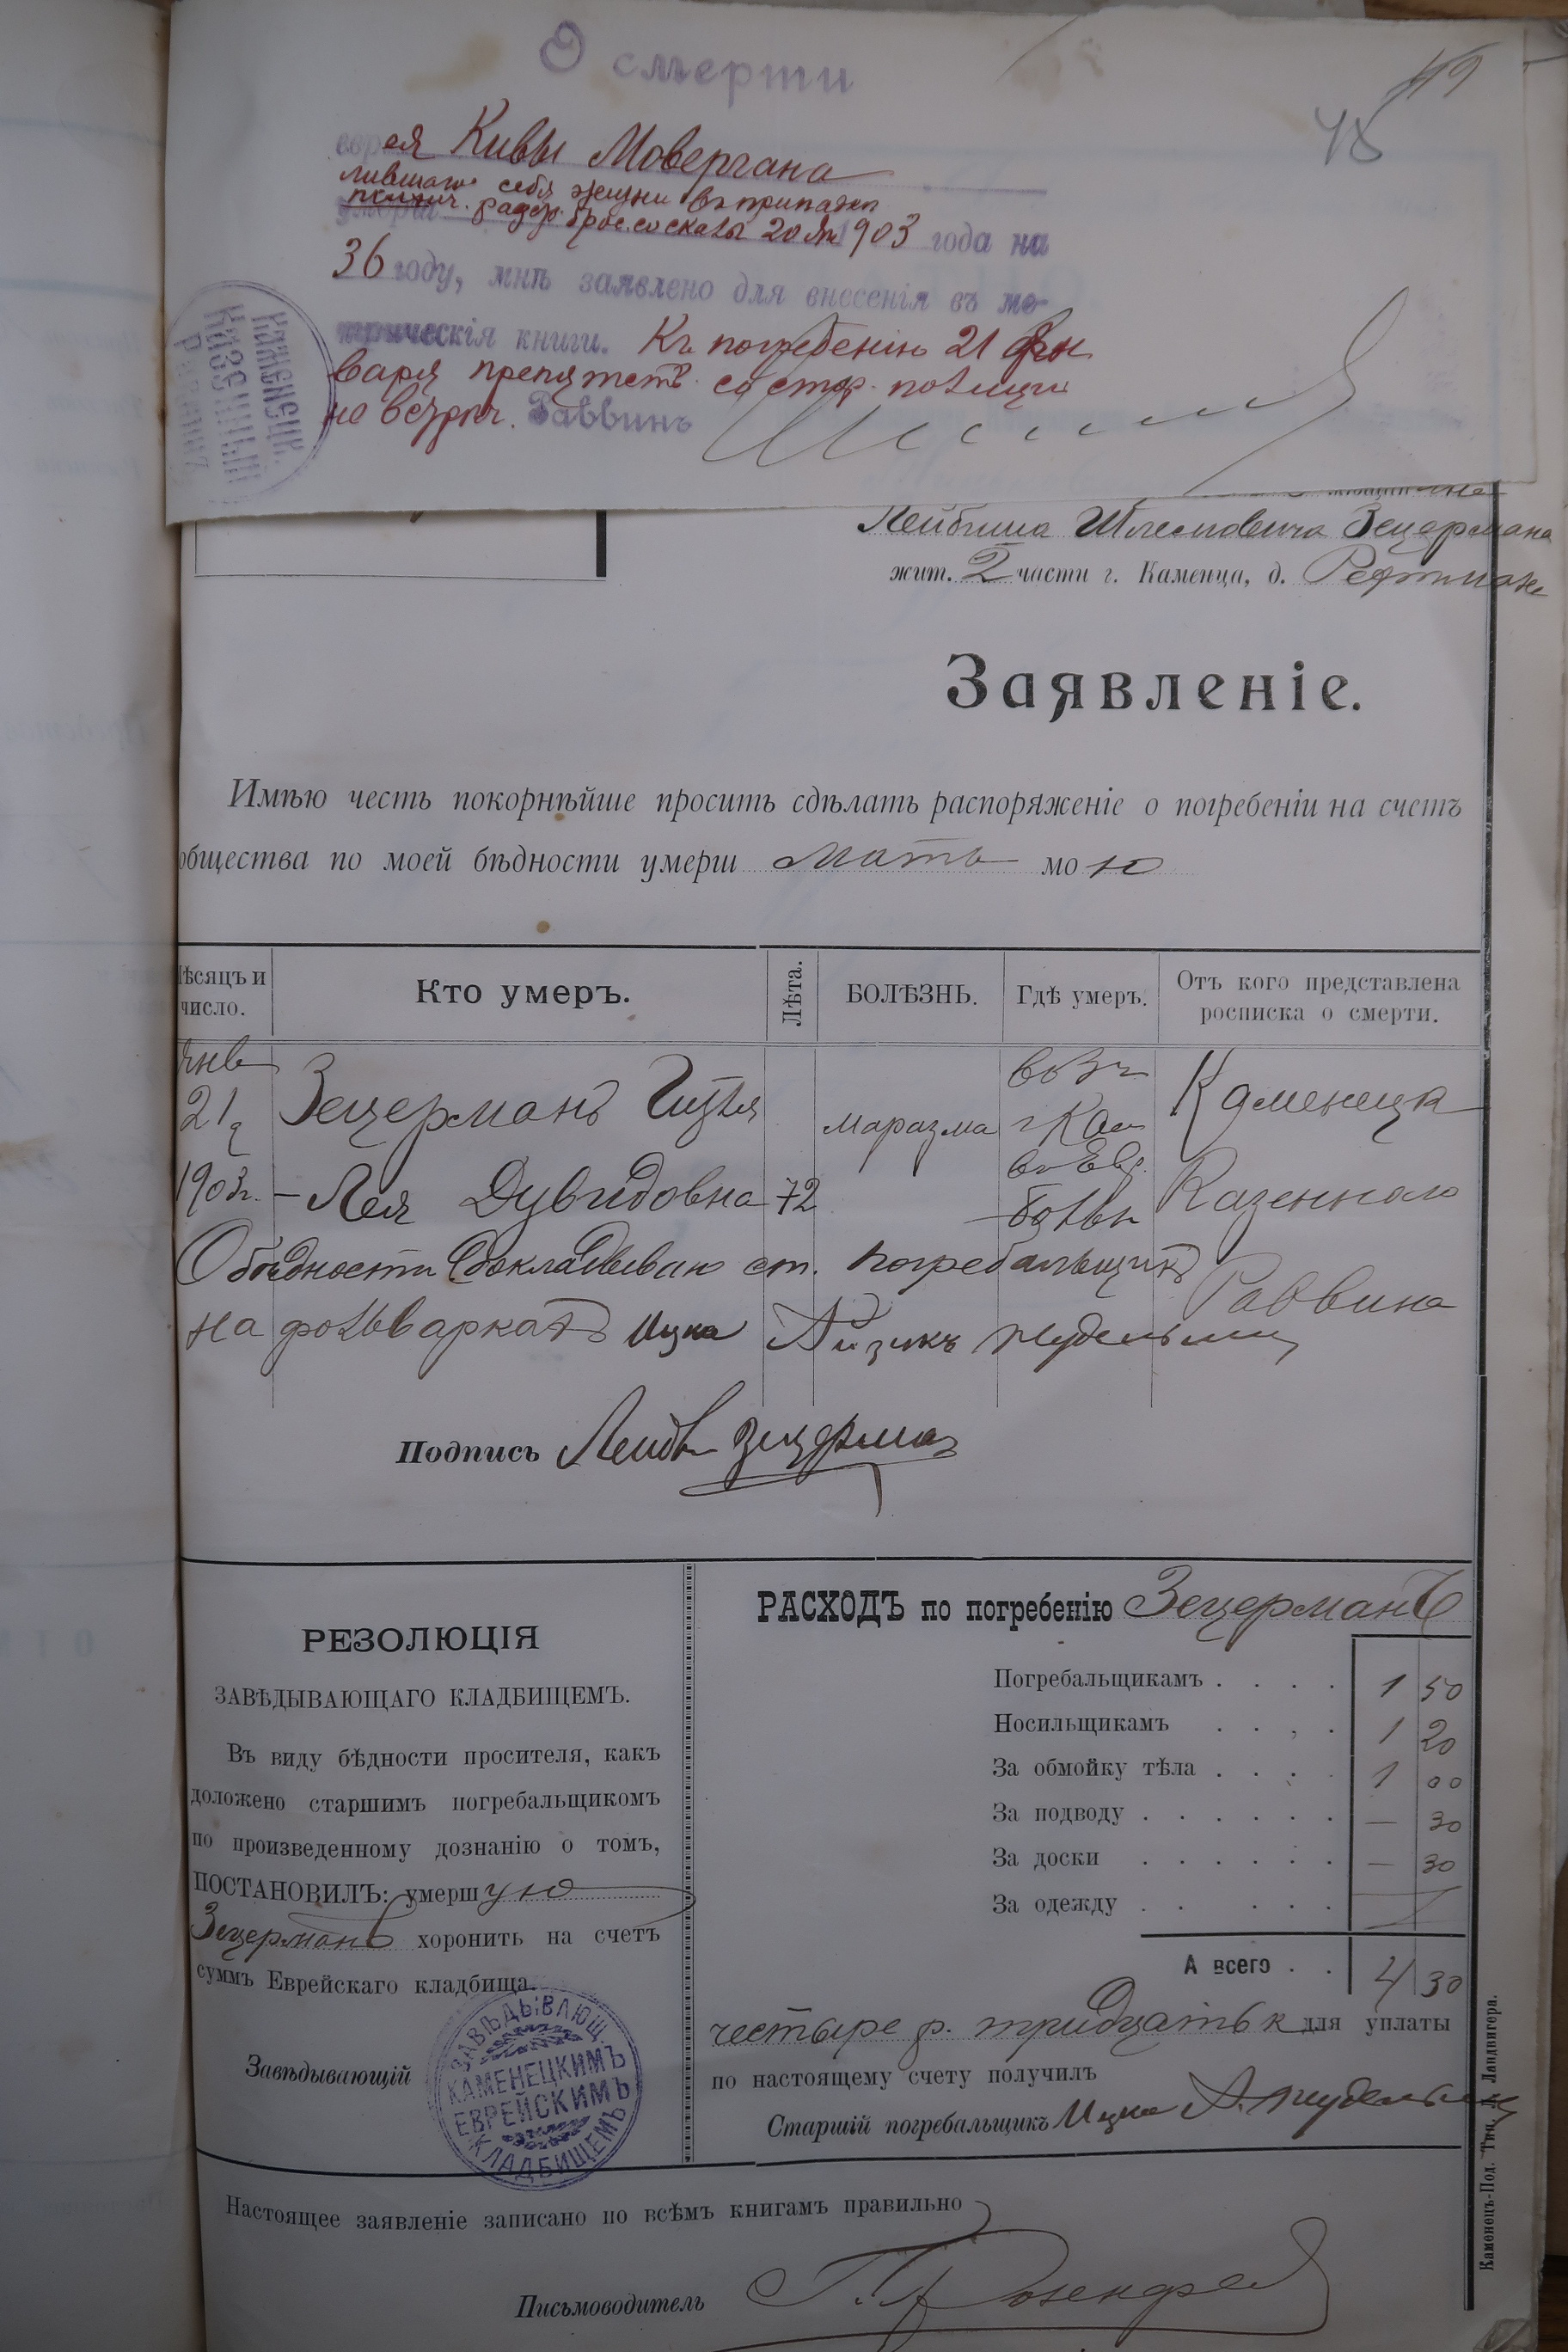 О смерти
49
48
еврея Кивы Мовергана
лившаго себя жизни въ припадкѣ
брос. со скалы 20 Ян 1903 года на
36 году, мнѣ заявлено для внесенія въ ме-
трическія книги. Къ погребенію 21 Ян
варя препятств. со стор. полиціи
не встрѣч. Раввинъ
КАМЕНЕЦК.
КАЗЕННЫЙ
РАВВИНЪ
Лейбиша Шлемовича Зецермана
жит. 2 части г. Каменца, д.
Заявленіе.
Имѣю честь покорнѣйше просить сдѣлать распоряженіе о погребеніи на счетъ
общества по моей бѣдности умерш мать мою
Мѣсяцъ и число.
Кто умеръ.
Лѣта.
БОЛѢЗНЬ.
Гдѣ умеръ.
Отъ кого представлена росписка о смерти.
Янв
21
1903г.
Зецерманъ Гитля
- Лея Дувидовна
72
маразма
г Кам
въ Евр.
больн
Каменецк
Казеннаго
Раввина
О бѣдности докладываю ст. погребальщикъ
на фольваркахъ Ицка Айзикъ
Подпись Лейбъ Зецерман
РЕЗОЛЮЦІЯ
ЗАВѢДЫВАЮЩАГО КЛАДБИЩЕМЪ.
Въ виду бѣдности просителя, какъ
доложено старшимъ погребальщикомъ
по произведенному дознанію о томъ,
ПОСТАНОВИЛЪ: умершую
Зецерманъ хоронить на счетъ
суммъ Еврейскаго кладбища.
Завѣдывающій
ЗАВѢДЫВАЮЩ.
КАМЕНЕЦКИМЪ
ЕВРЕЙСКИМЪ
КЛАДБИЩЕМЪ
РАСХОДЪ по погребенію Зецерманъ
Погребальщикамъ . . . . 1 50
Носильщикамъ . . . . 1 20
За обмойку тѣла . . . . 1 00
За подводу . . . . . . — 30
За доски . . . . . . — 30
За одежду . . . . .
А всего . . 4 30
честыре р. тридцать к для уплаты
по настоящему счету получилъ
Старшій погребальщикъ Ицка А.
Настоящее заявленіе записано по всѣмъ книгамъ правильно
Письмоводитель
Каменецъ-Под. Тип. Л. Ландвигера.